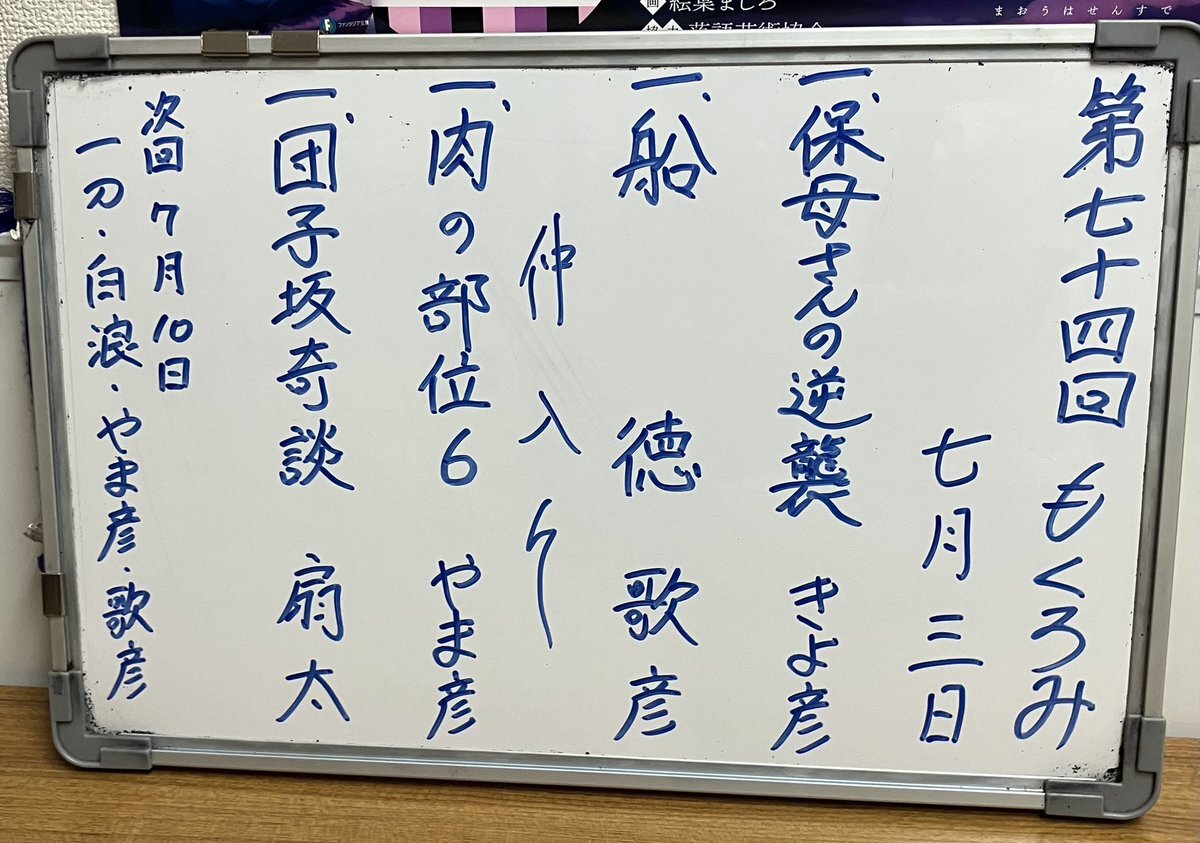 ファンタジア文庫
絵葉ましろ
落語芸術協会
まおうはせんすで
第七十四回 もくろみ
七月三日
一、保母さんの逆襲 きよ彦
一、船徳 歌彦
仲入り
一、肉の部位6 やま彦
一、団子坂奇談 扇太
次回 7月10日
一刀・白浪・やま彦・歌彦